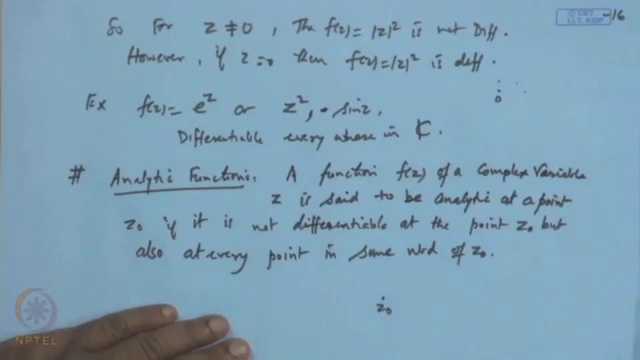 © CET
I.I.T. KGP
-16
So For z ≠ 0, The f(z) = |z|² is not Diff.
However, if z = 0 then f(z) = |z|² is diff.
Ex f(z) = e^z or z², sin z,
Differentiable every where in ℂ.
# Analytic Functions: A function f(z) of a Complex Variable
z is said to be analytic at a point
z₀ if it is not differentiable at the point z₀ but
also at every point in some nbd of z₀.
z₀
NPTEL